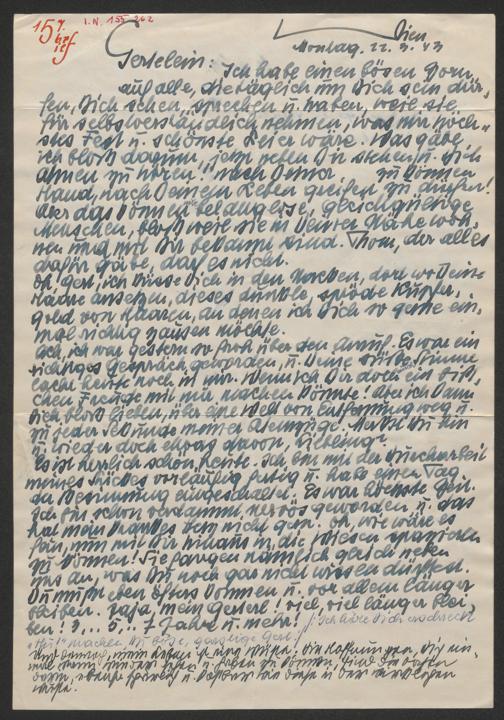 157.
I.N. 155 262
Wien
Montag. 22. 3. 43
Gerstelein: Ich habe einen bösen Zorn
auf alle, die tagtäglich um Dich sein dür-
fen, Dich sehen, sprechen u. haben, weil sie
für selbstverständlich nehmen, was mir höch-
stes Fest u. schönste Feier wäre. Was gäbe
ich bloss darum, jetzt neben Dir stehen u. Dich
atmen zu hören! nach Deiner zu können
Hand, nach Deinem Leben greifen zu dürfen!
Aber das können belanglose, gleichgültige
Menschen, bloss weil sie in Deiner Nähe woh-
nen und mit Dir bekannt sind. Thom, der alles
dafür gäbe, darf es nicht.
Oh, Gerl, ich küsse Dich in den Nacken, dort wo Deine
Haare ansetzen, dieses dunkle, spröde Kupfer-
gold von Haaren, an denen ich Dich so gerne ein-
mal richtig zausen möchte.
Ach, ich war gestern so froh über den Anruf. Es war ein
richtiges Gespräch geworden, u. Deine süsse Stimme
lacht heute noch in mir. Wenn ich Dir doch ein biss-
chen Freude mit mir machen könnte! Aber ich kann
Dich bloss lieben, über eine Welt von Entfernung weg u.
zu jeder Sekunde meiner Atemzüge. Merkst Du hin
u. wieder doch etwas davon, Liebling?
Es ist herrlich schön heute. Ich bin mit der Durcharbeit
meines Stückes vorläufig fertig u. habe einen Tag
der Besinnung eingeschaltet. Es war höchste Zeit.
Ich bin schon verdammt nervös geworden u. das
hat mein krankes Herz nicht gern. Oh, wie wäre es
fein, nun mit Dir hinaus in die Wiesen spazieren
zu können! Sie fangen nämlich gleich neben
uns an, was Du noch gar nicht wissen dürftest.
Du musst eben öfters kommen u. vor allem länger
bleiben. Jaja, mein Gersterl! viel, viel länger blei-
ben! 3... 5... 7 Jahre u. mehr! Ich höre Dich erschreckt
"Hu!" machen Du böse, garstige Gerl.
Und dennoch, mein Leben ist eine Wüste. Die Hoffnungen, Dich ein-
mal darin haben zu können, sind die
u. der
Wüste.